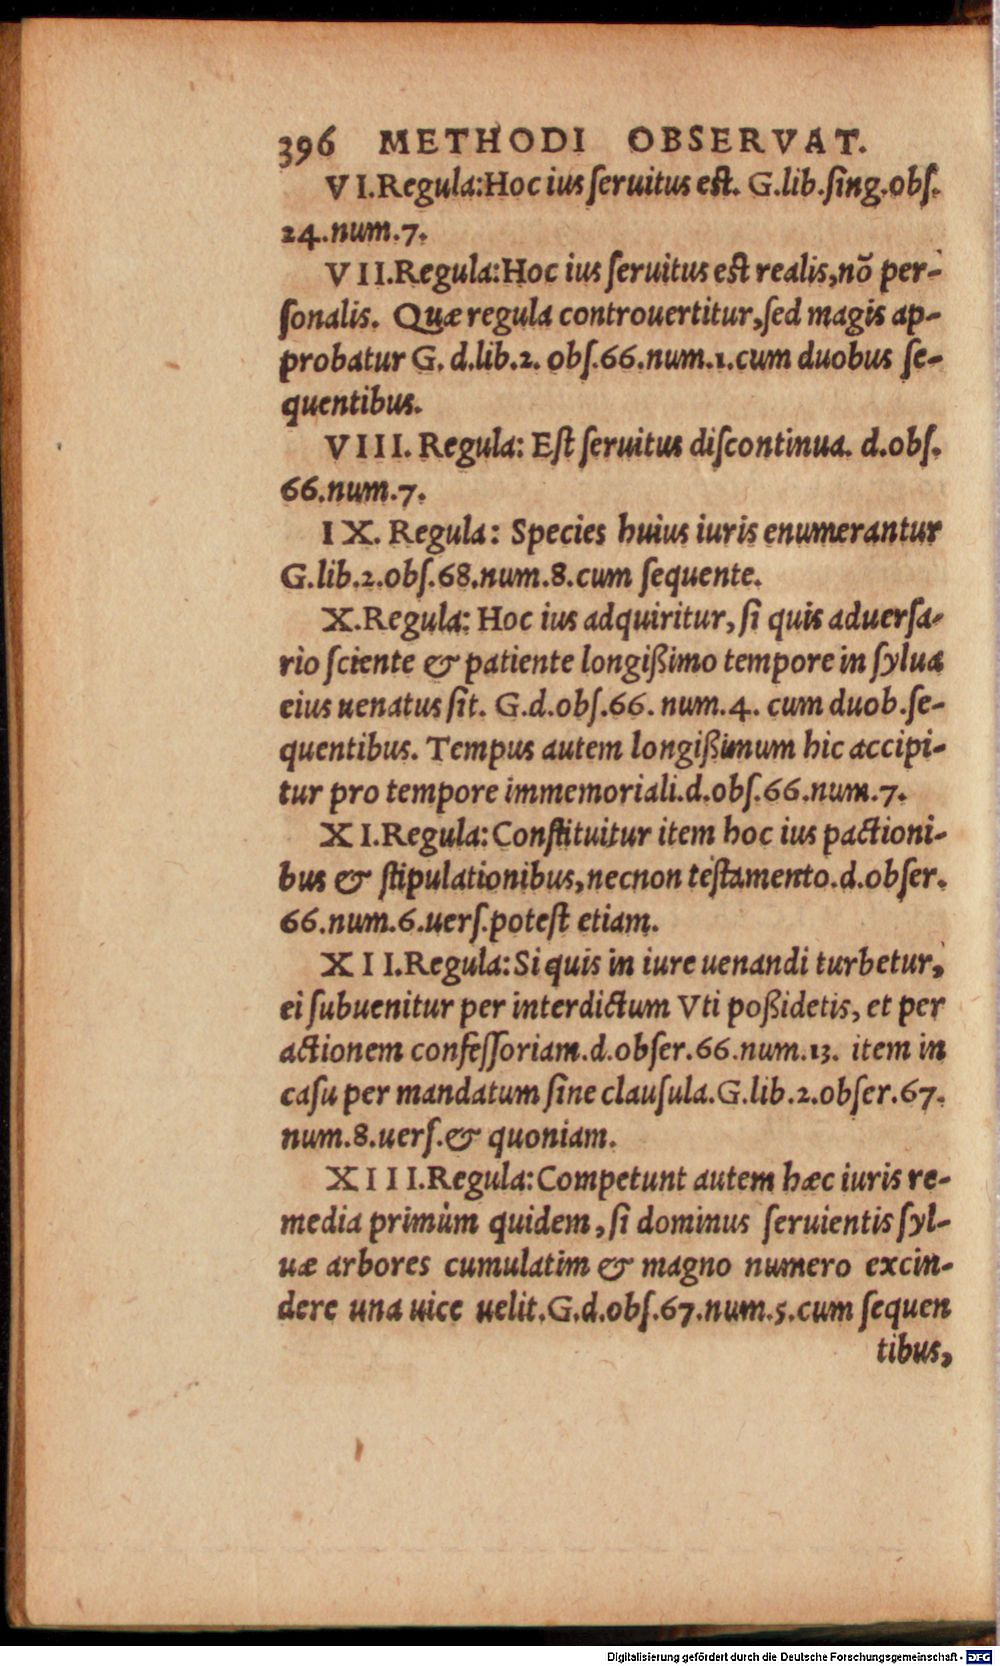 396 METHODI OBSERVAT.
VI.Regula:Hoc ius ſeruitus est. G.lib.ſing.obſ.
24.num.7.
VII.Regula:Hoc ius ſeruitus est realis,nõ per-
ſonalis. Quæ regula controuertitur,ſed magis ap-
probatur G. d.lib.2. obſ.66.num.1.cum duobus ſe-
quentibus.
VIII. Regula: Eſt ſeruitus diſcontinua. d.obſ.
66.num.7.
IX. Regula: Species huius iuris enumerantur
G.lib.2.obſ.68.num.8.cum ſequente.
X.Regula: Hoc ius adquiritur, ſi quis aduerſa-
rio ſciente & patiente longißimo tempore in ſylua
eius uenatus ſit. G.d.obſ.66. num.4. cum duob.ſe-
quentibus. Tempus autem longißimum hic accipi-
tur pro tempore immemoriali.d.obſ.66.num.7.
XI.Regula:Conſtituitur item hoc ius pactioni-
bus & ſtipulationibus,necnon teſtamento.d.obſer.
66.num.6.uerſ.poteſt etiam.
XII.Regula:Si quis in iure uenandi turbetur,
ei ſubuenitur per interdictum Vti poßidetis, et per
actionem confeſſoriam.d.obſer.66.num.13. item in
caſu per mandatum ſine clauſula.G.lib.2.obſer.67.
num.8.uerſ.& quoniam.
XIII.Regula:Competunt autem hæc iuris re-
media primùm quidem, ſi dominus ſeruientis ſyl-
uæ arbores cumulatim & magno numero excin-
dere una uice uelit.G.d.obſ.67.num.5.cum ſequen
tibus,
Digitalisierung gefördert durch die Deutsche Forschungsgemeinschaft - DFG